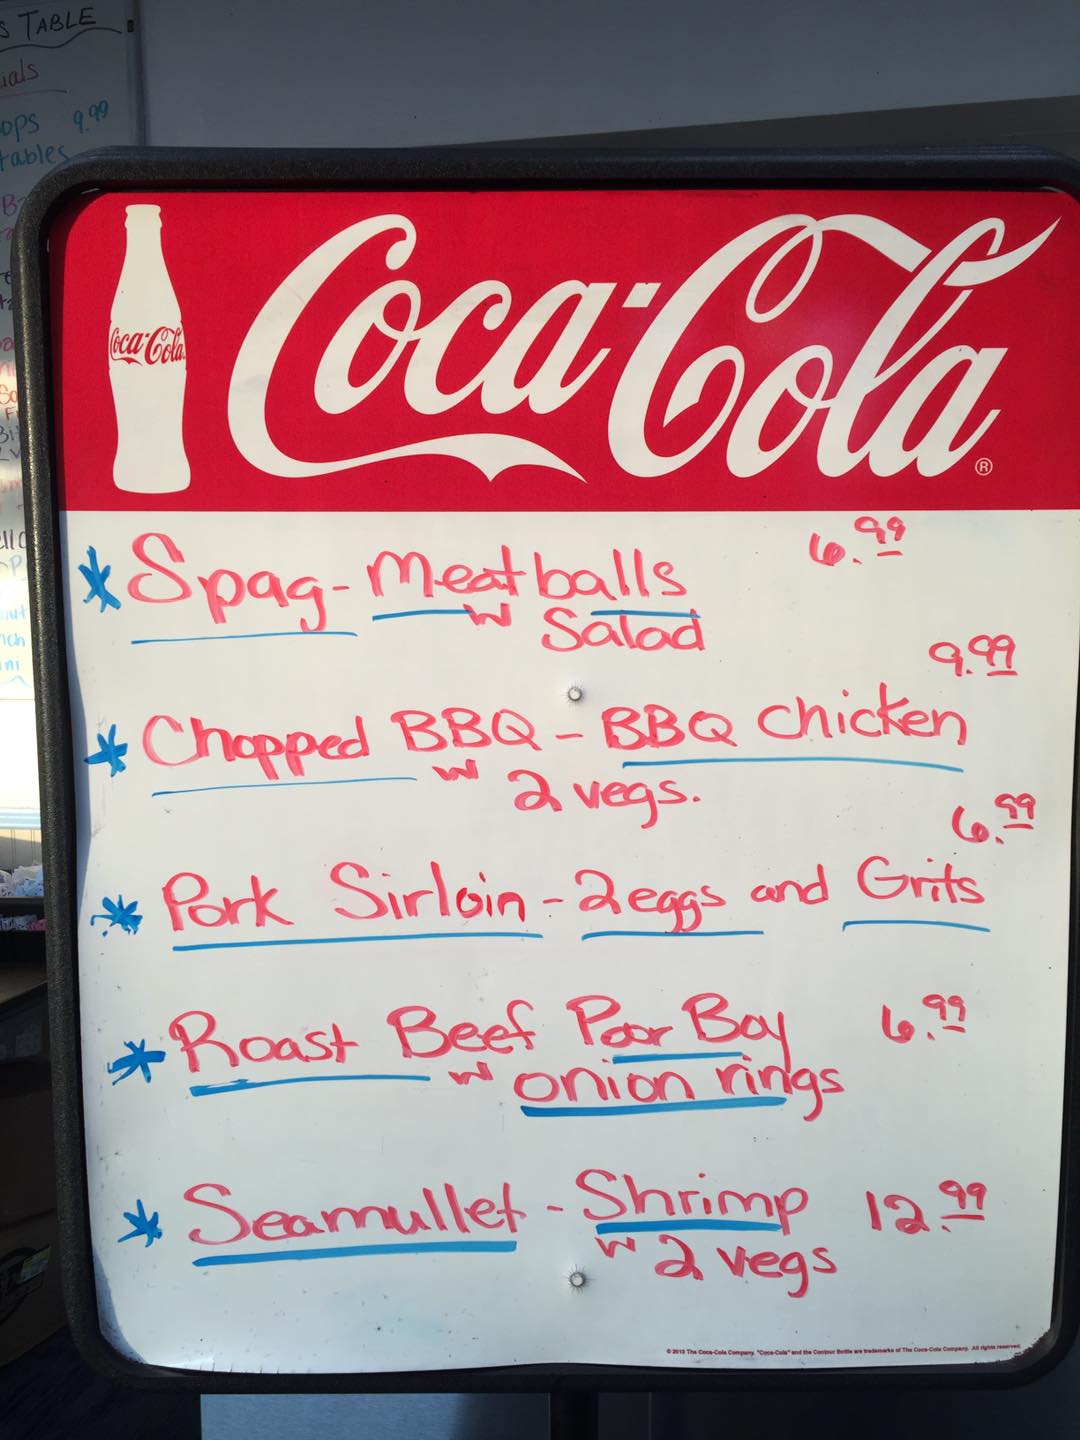 S TABLE
ials
ops 9.99
tables
Coca-Cola
Coca-Cola®
* Spag-Meatballs 6.99
w Salad
9.99
* Chopped BBQ - BBQ Chicken
w 2 vegs.
6.99
* Pork Sirloin - 2 eggs and Grits
* Roast Beef Poor Boy 6.99
w onion rings
* Seamullet - Shrimp 12.99
w 2 vegs
© 2013 The Coca-Cola Company. "Coca-Cola" and the Contour Bottle are trademarks of The Coca-Cola Company. All rights reserved.